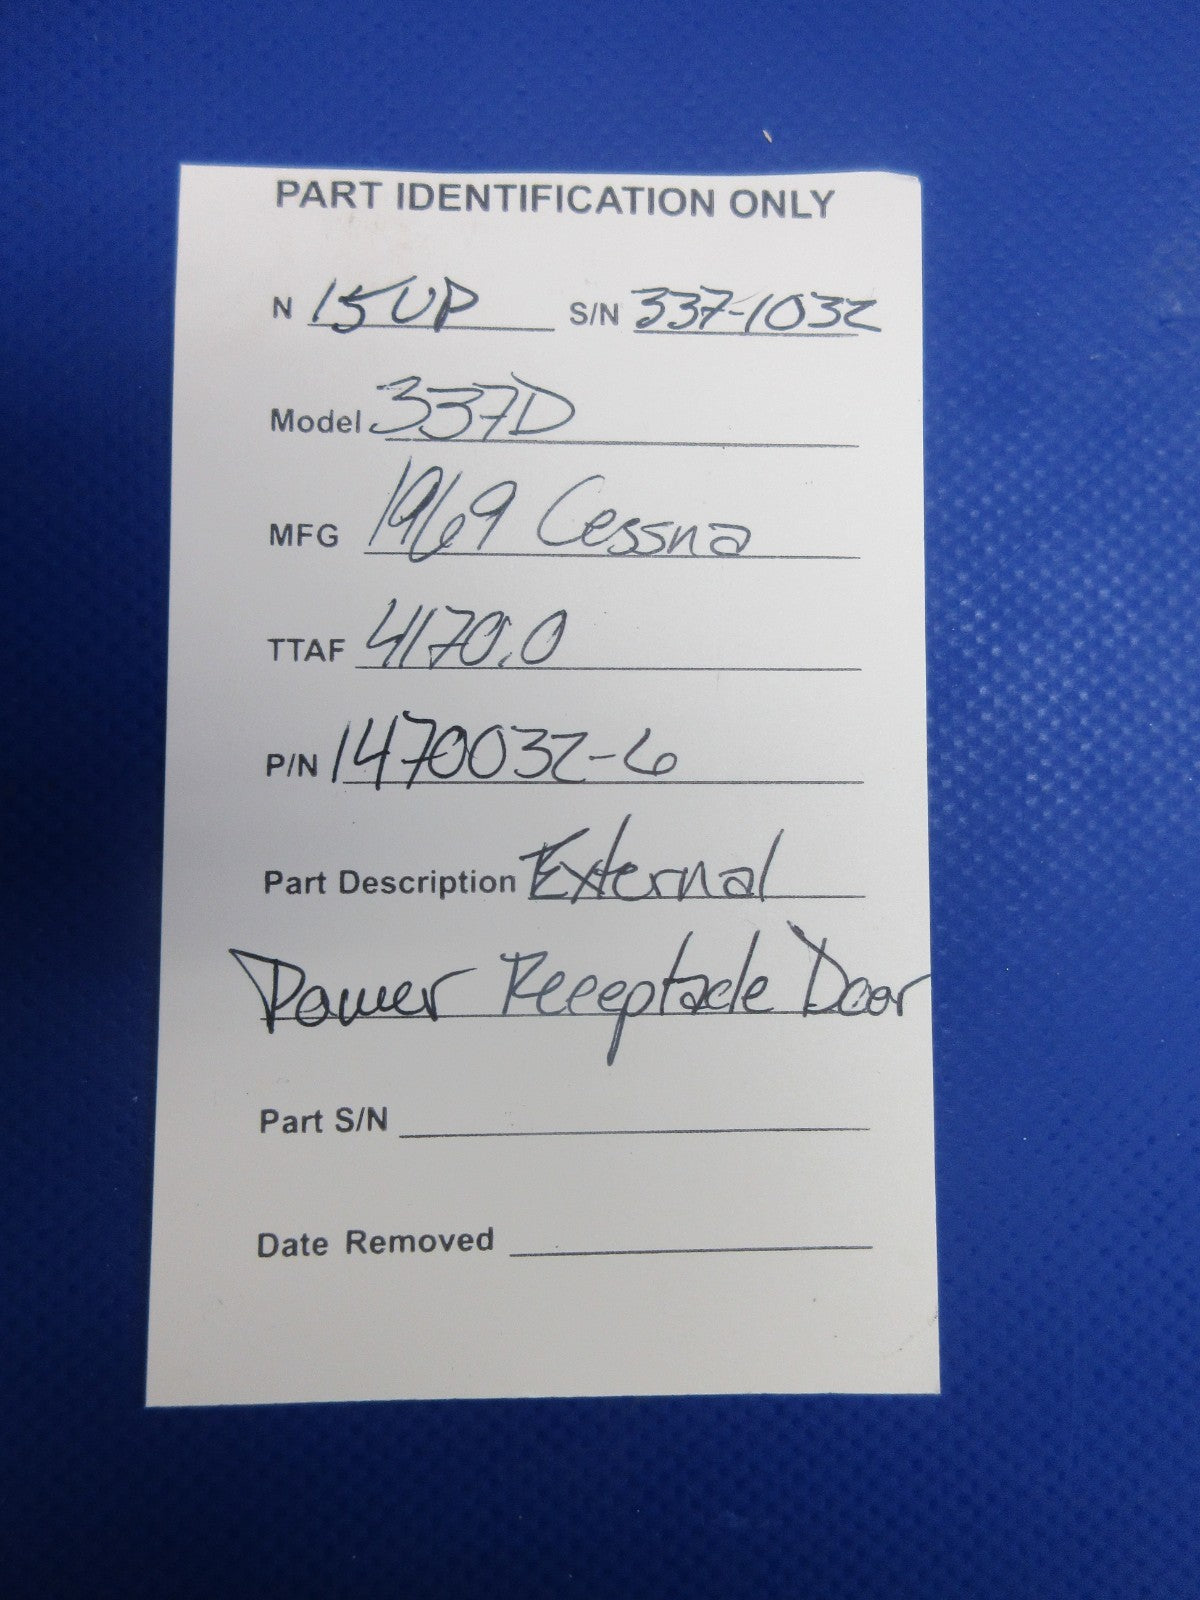 PART IDENTIFICATION ONLY
N 15UP S/N 337-1032
Model 337D
MFG 1969 Cessna
TTAF 4170.0
P/N 1470032-6
Part Description External
Power Receptacle Door
Part S/N
Date Removed